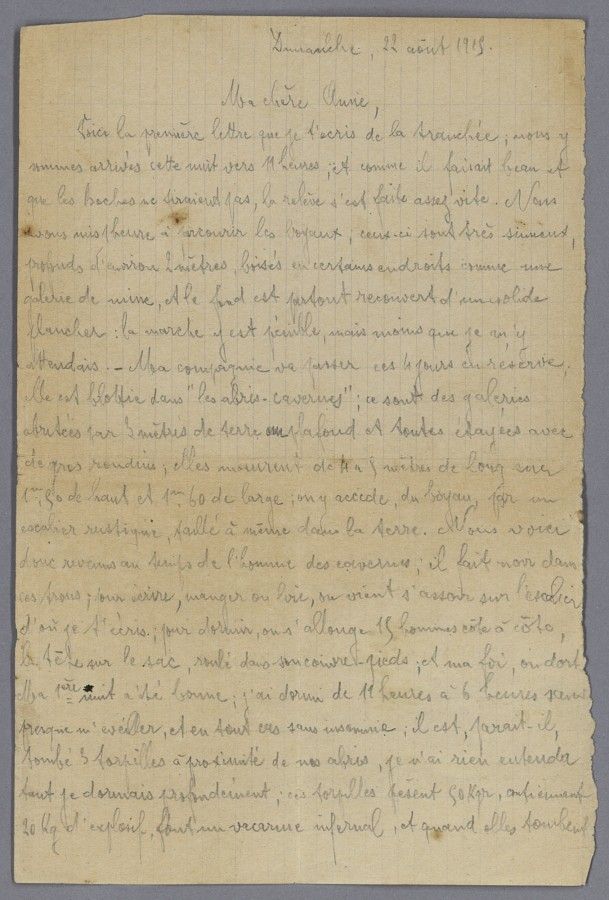 Dimanche, 22 août 1915.
Ma chère Annie,
Voici la première lettre que je t'écris de la tranchée ; nous y
sommes arrivés cette nuit vers 11 heures ; et comme il faisait beau et
que les boches ne tiraient pas, la relève s'est faite assez vite. Nous
avons mis 1 heure à parcourir les boyaux, ceux-ci sont très sinueux,
profonds d'environ 2 mètres, boisés en certains endroits comme une
galerie de mine, et le fond est partout recouvert d'un solide
plancher : la marche y est pénible, mais moins que je m'y
attendais. - Ma compagnie va passer ces 4 jours en réserve,
elle est blottie dans "les abris-cavernes" ; ce sont des galeries
abritées par 3 mètres de terre au plafond et toutes étayées avec
de gros rondins ; elles mesurent de 4 à 5 mètres de long sur
1m,50 de haut et 1m,60 de large ; on y accède, du boyau, par un
escalier rustique, taillé à même dans la terre. Nous voici
donc revenus au temps de l'homme des cavernes ; il fait noir dans
ces trous ; pour écrire, manger ou lire, on vient s'asseoir sur l'escalier
d'où je t'écris ; pour dormir, on s'allonge 15 hommes côte à côte,
la tête sur le sac, roulé dans son couvre-pieds ; et ma foi, on dort.
Ma 1ère nuit a été bonne ; j'ai dormi de 11 heures à 6 heures sans
presque m'éveiller, et en tout cas sans insomnie ; il est, paraît-il,
tombé 3 torpilles à proximité de nos abris, je n'ai rien entendu
tant je dormais profondément ; ces torpilles pèsent 50 Kgr, contiennent
20 Kg d'explosif, font un vacarme infernal, et quand elles tombent